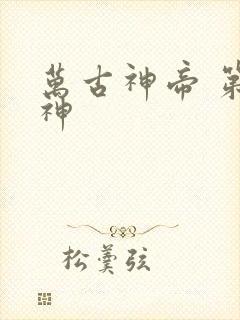 萬古神帝 第
神
松羹弦